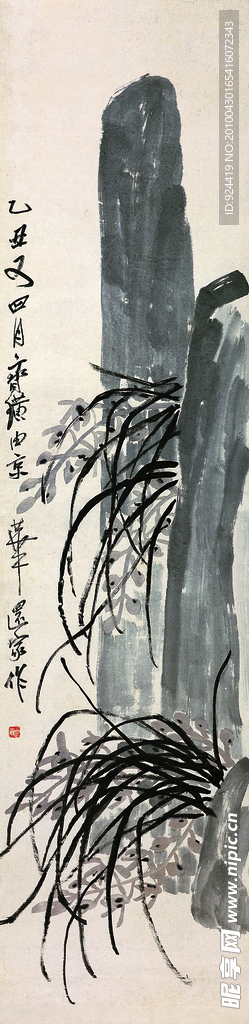 ID:924419 NO:20100430165416072343
乙丑又四月齐璜由京
华还家作
昵享网 www.nipic.cn